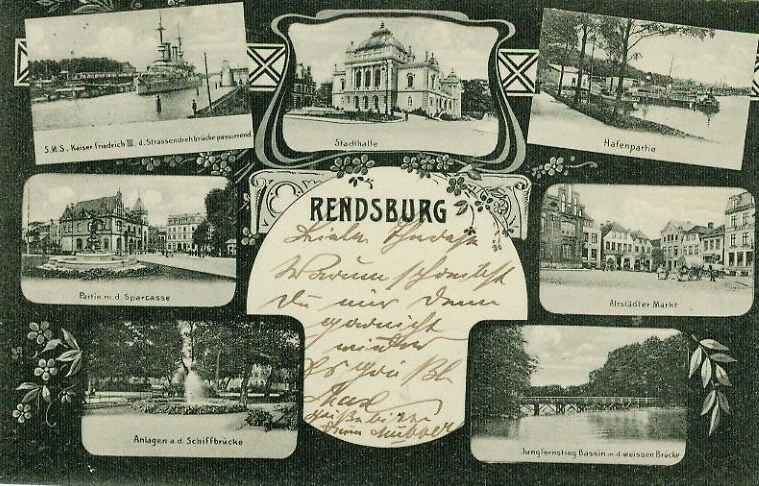 S.M.S. Kaiser Friedrich III. d. Strassendrehbrücke passirend
Stadthalle
Hafenpartie
RENDSBURG
Partie m. d. Sparcasse
Altstädter Markt
Anlagen a. d. Schiffbrücke
Jungfernstieg Bassin m. d. weissen Brücke
Warum schreibst
du mir denn
garnicht
wieder